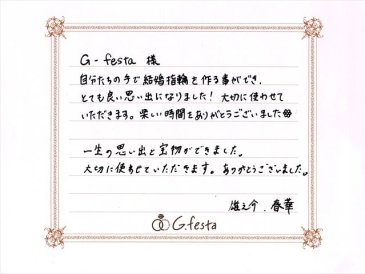 G-festa 様
自分たちの手で結婚指輪を作る事ができ、
とても良い思い出になりました！大切に使わせて
いただきます。楽しい時間をありがとうございました
一生の思い出と宝物ができました。
大切に使わせていただきます。ありがとうございました。
雄之介．春華
G.festa